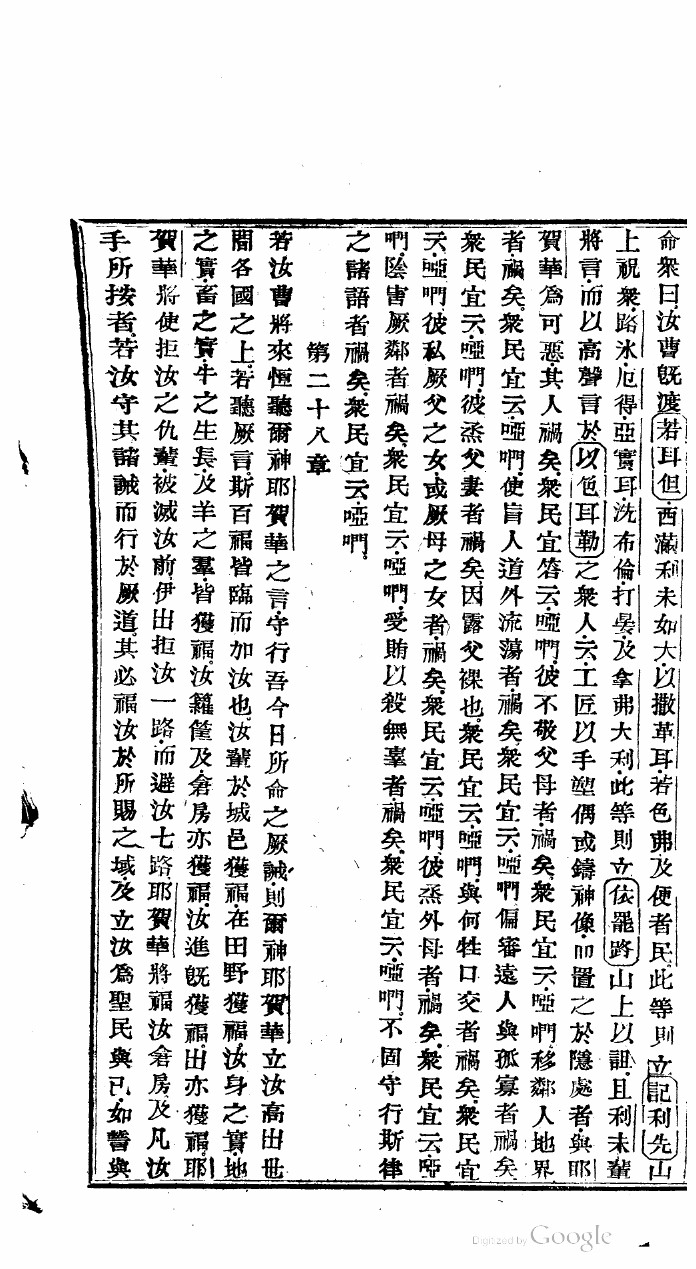 命衆曰汝曹旣渡若耳但西滿利未如大以撒革耳若色弗及便者民此等則立記利先山
上祝衆路氷厄得亞實耳洗布倫打晏及拿弗大利此等則立依罷路山上以詛且利未輩
將言而以高聲言於以色耳勒之衆人云工匠以手塑偶或鑄神像而置之於隱處者與耶
賀華爲可惡其人禍矣衆民宜答云啞們彼不敬父母者禍矣衆民宜云啞們移鄰人地界
者禍矣衆民宜云啞們使盲人道外流蕩者禍矣衆民宜云啞們偏審遠人與孤寡者禍矣
衆民宜云啞們彼烝父妻者禍矣因露父裸也衆民宜云啞們與何牲口交者禍矣衆民宜
云啞們彼私厥父之女或厥母之女者禍矣衆民宜云啞們彼烝外母者禍矣衆民宜云啞
們陰害厥鄰者禍矣衆民宜云啞們受賄以殺無辜者禍矣衆民宜云啞們不固守行斯律
之諸語者禍矣衆民宜云啞們
第二十八章
若汝曹將來恒聽爾神耶賀華之言守行吾今日所命之厥誡則爾神耶賀華立汝高出世
間各國之上若聽厥言斯百福皆臨而加汝也汝輩於城邑獲福在田野獲福汝身之實地
之實畜之實牛之生長及羊之羣皆獲福汝籮筐及倉房亦獲福汝進旣獲福出亦獲福耶
賀華將使拒汝之仇輩被滅汝前伊出拒汝一路而避汝七路耶賀華將福汝倉房及凡汝
手所按者若汝守其諸誡而行於厥道其必福汝於所賜之域及立汝爲聖民與己如誓與
Digitized by Google